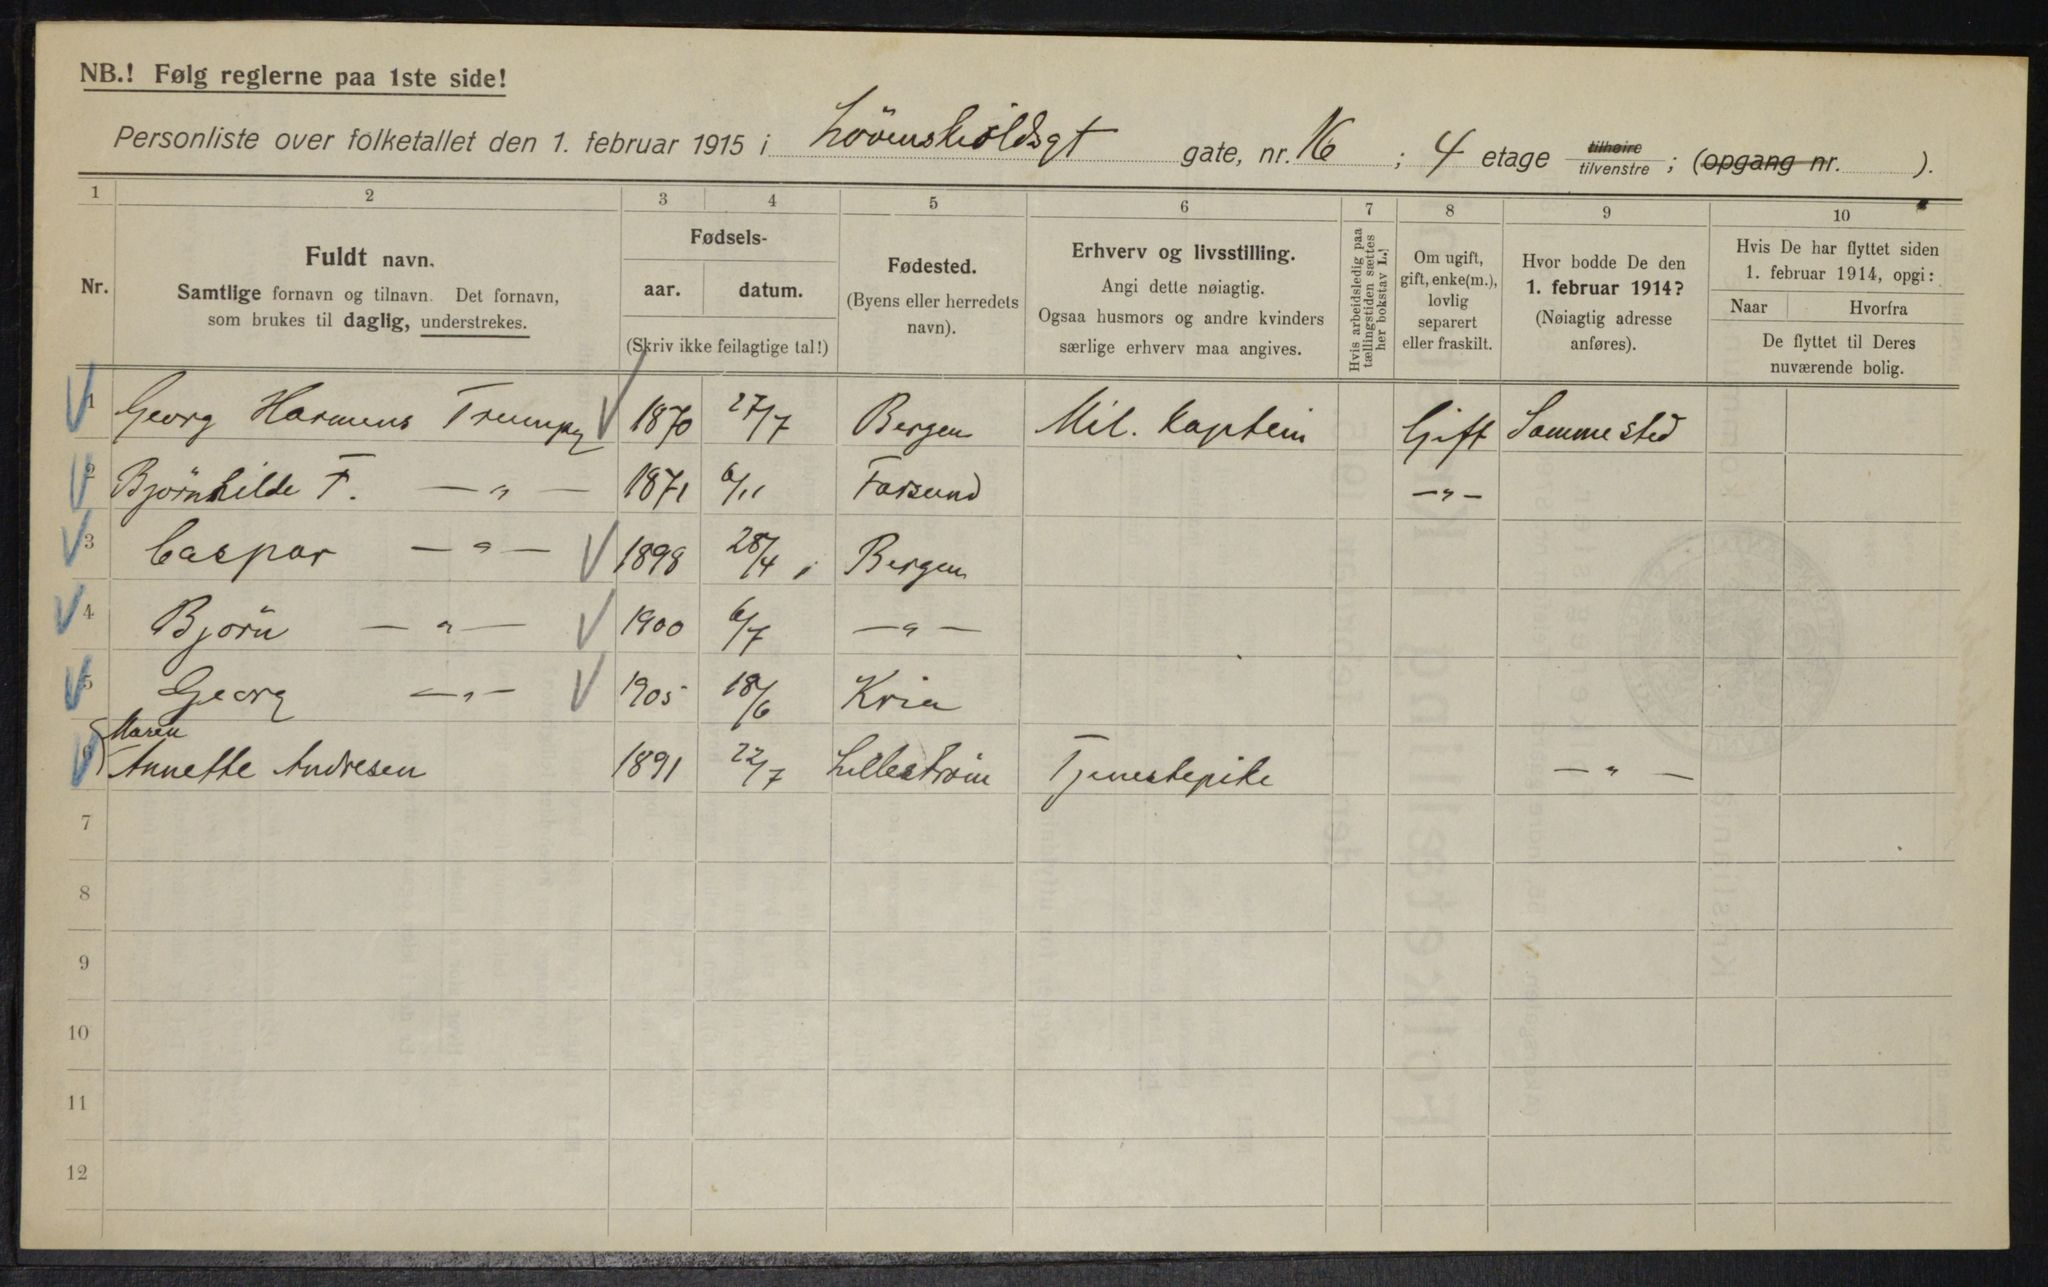 NB.! Følg reglerne paa 1ste side!
Personliste over folketallet den 1. februar 1915 i Lövenskioldsgt gate, nr. 16 ; 4 etage tilhøire tilvenstre ; (opgang nr. ).
1 2 3 4 5 6 7 8 9 10
Nr.
Fuldt navn.
Samtlige fornavn og tilnavn. Det fornavn,
som brukes til daglig, understrekes.
Fødsels-
aar. datum.
(Skriv ikke feilagtige tal!)
Fødested.
(Byens eller herredets
navn).
Erhverv og livsstilling.
Angi dette nøiagtig.
Ogsaa husmors og andre kvinders
særlige erhverv maa angives.
Hvis arbeidsledig paa
tællingstiden sættes
her bokstav L.
Om ugift,
gift, enke(m.),
lovlig
separert
eller fraskilt.
Hvor bodde De den
1. februar 1914?
(Nøiagtig adresse
anføres).
Hvis De har flyttet siden
1. februar 1914, opgi:
Naar Hvorfra
De flyttet til Deres
nuværende bolig.
1 Georg Harmens Trumpy 1870 27/7 Bergen Mil. Kaptein Gift Sammested
2 Bjørnhilde F. — „ — 1871 6/11 Farsund — „ —
3 Caspar — „ — 1898 28/4 Bergen
4 Bjørn — „ — 1900 6/7 — „ —
5 Georg — „ — 1905 18/6 Kria
Maren
6 Annette Andresen 1891 22/7 Lillestrøm Tjenestepike — „ —
7
8
9
10
11
12